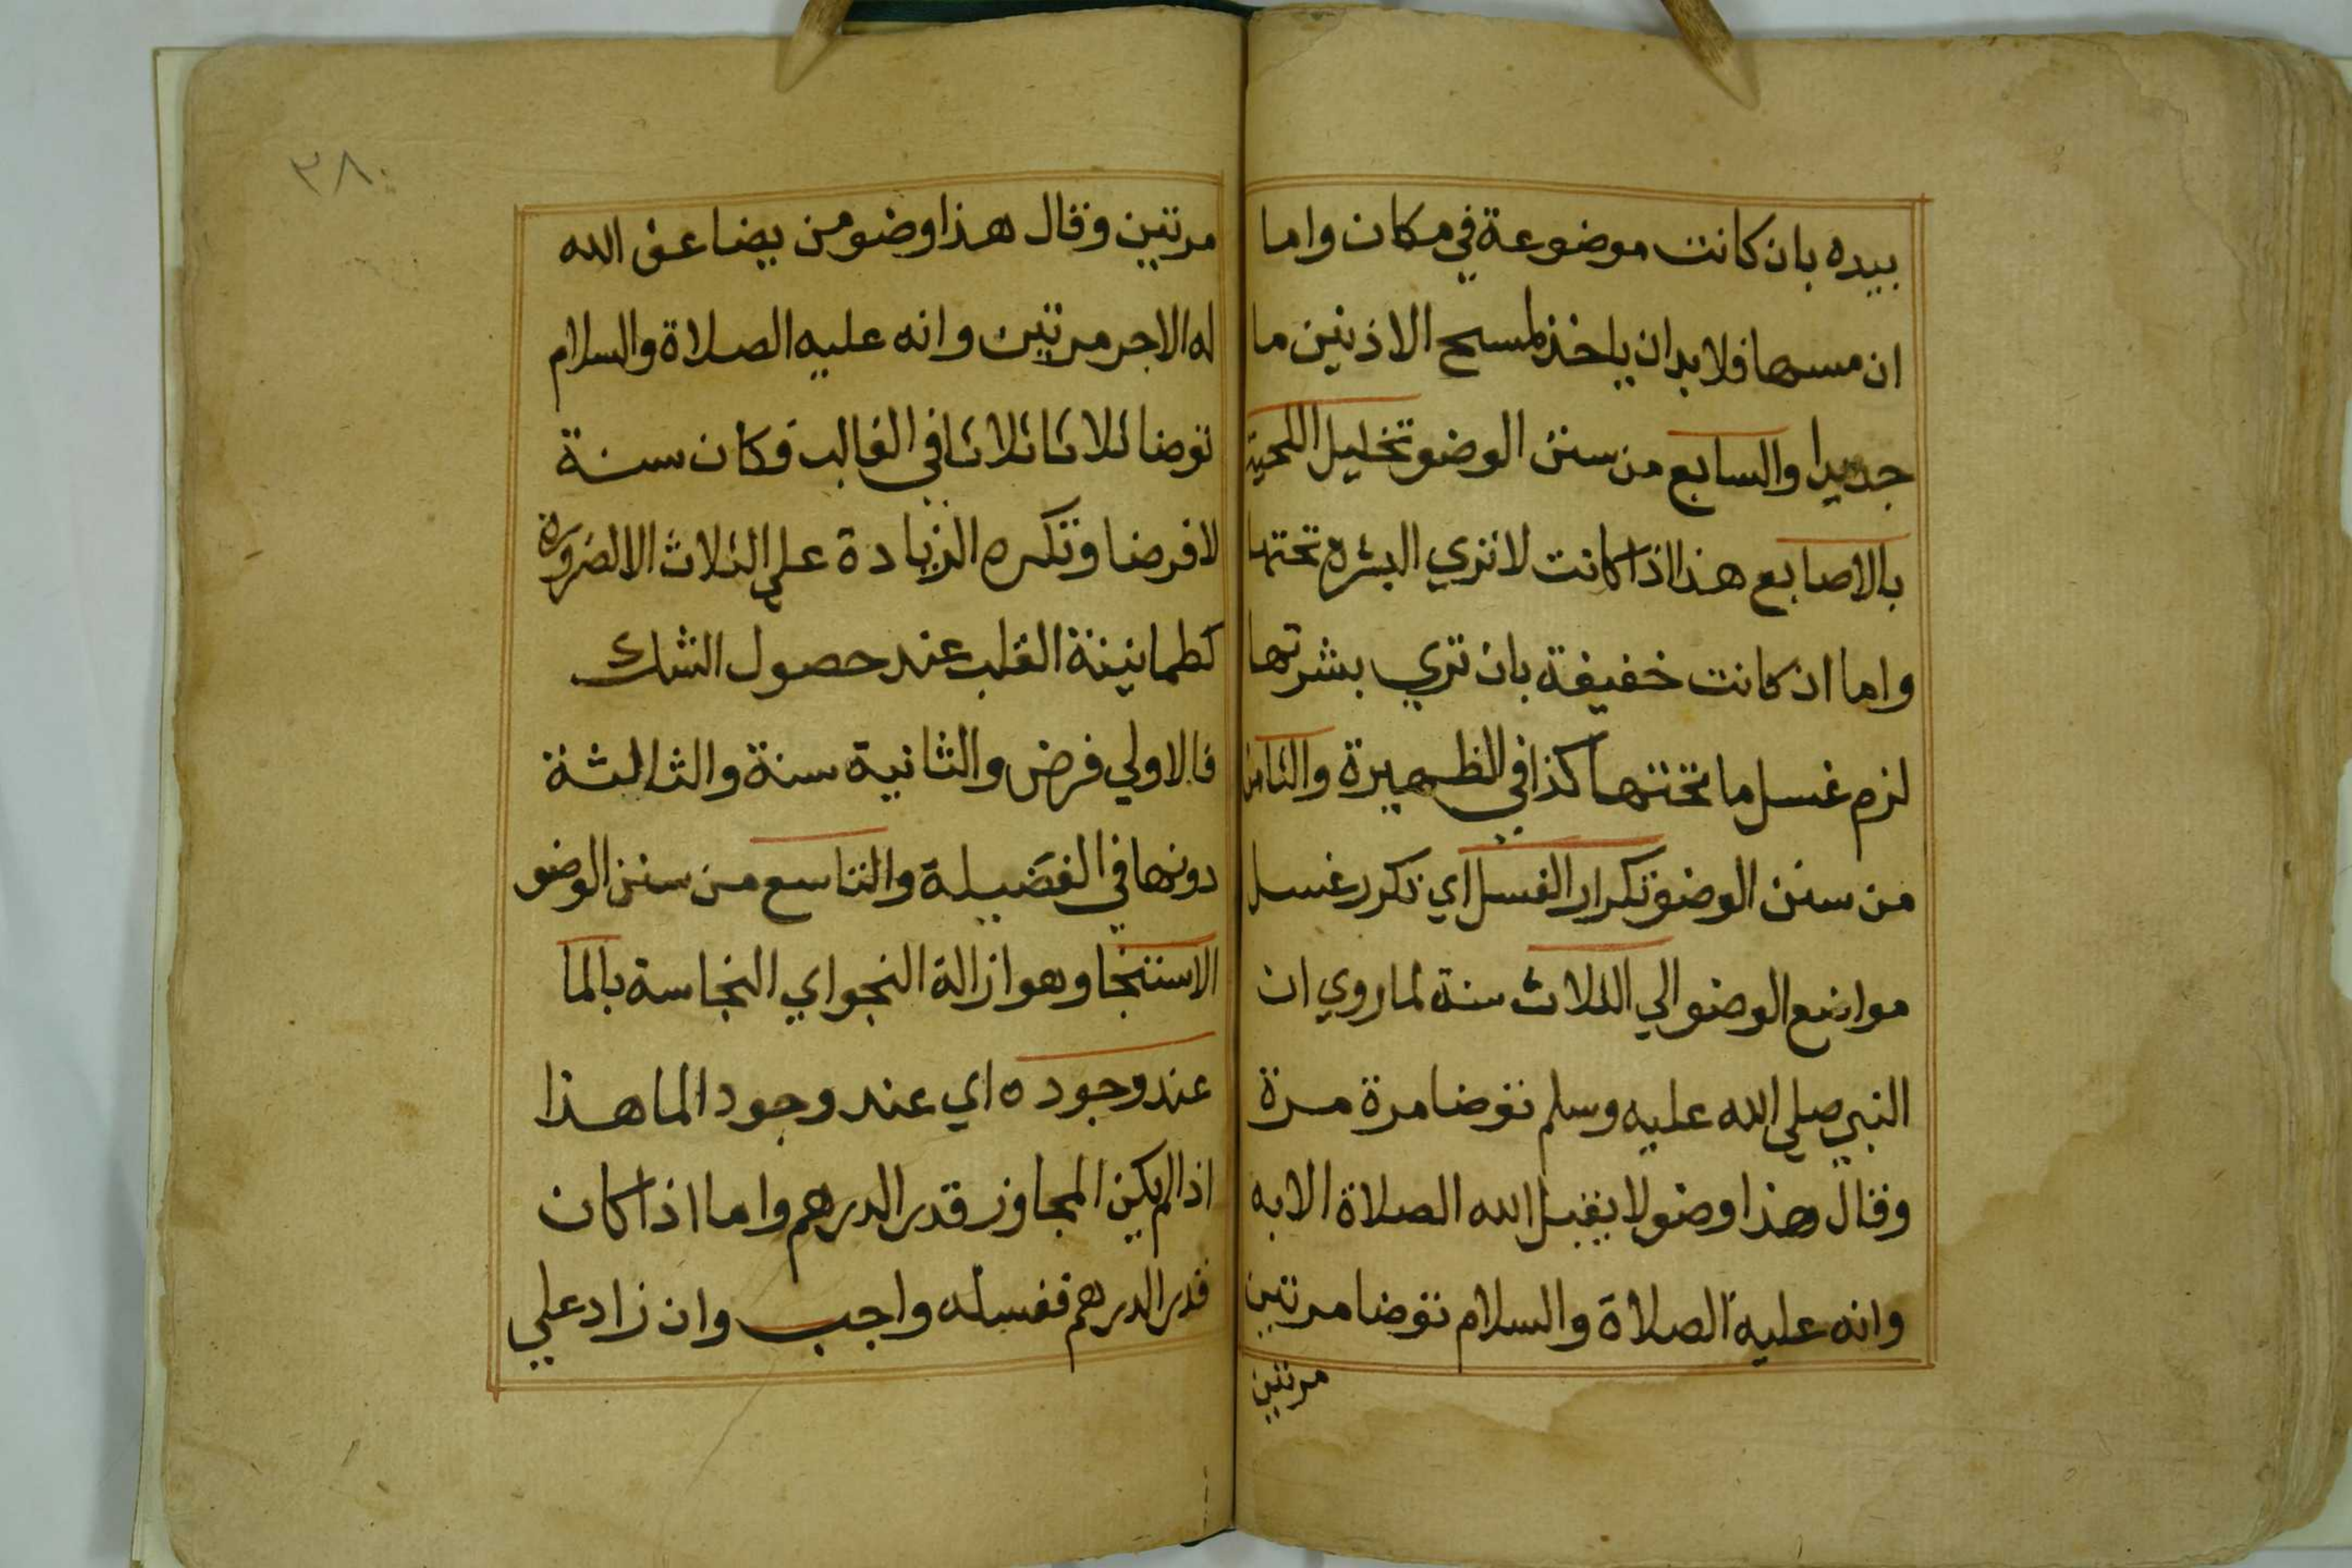 بيده بان كانت موضوعة في مكان واما
ان مسها فلا بد ان ياخذ لمسح الاذنين ما
جديدا والسابع من سنن الوضو تخليل اللحية
بالاصابع هذا اذا كانت لا تري البشره تحتها
واما ان كانت خفيفة بان تري بشرتها
لزم غسل ما تحتها كذا في الظهيرة والثامن
من سنن الوضو تكرار الغسل اي تكرر غسل
مواضع الوضو الي الثلاث سنة لما روي ان
النبي صلي الله عليه وسلم توضا مرة مرة
وقال هذا وضو لا يقبل الله الصلاة الا به
وانه عليه الصلاة والسلام توضا مرتين
مرتين
٣٨٠
مرتين وقال هذا وضو من يضاعف الله
له الاجر مرتين وانه عليه الصلاة والسلام
توضا ثلاثا ثلاثا في الغالب فكان سنة
لا فرضا وتكره الزيادة علي الثلاث الا لضرورة
كطمانينة القلب عند حصول الشك
فالاولي فرض والثانية سنة والثالثة
دونها في الفضيلة والتاسع من سنن الوضو
الاستنجا وهو ازالة النجو اي النجاسة بالما
عند وجوده اي عند وجود الما هذا
اذا لم يكن المجاوز قدر الدرهم واما اذا كان
قدر الدرهم فغسله واجب وان زاد علي